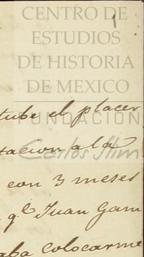 CENTRO DE
ESTUDIOS
DE HISTORIA
DE MEXICO
tube el placer
FUNDACIÓN
tacion a la
Carlos Slim
con 3 meses
q.e Juan Gam
aba colocarme